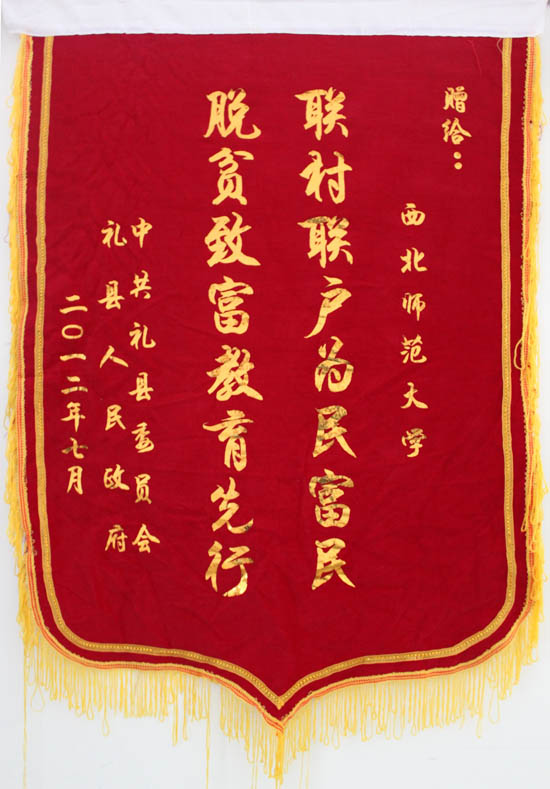 赠给：
西北师范大学
联村联户为民富民
脱贫致富教育先行
中共礼县委员会
礼县人民政府
二〇一二年七月